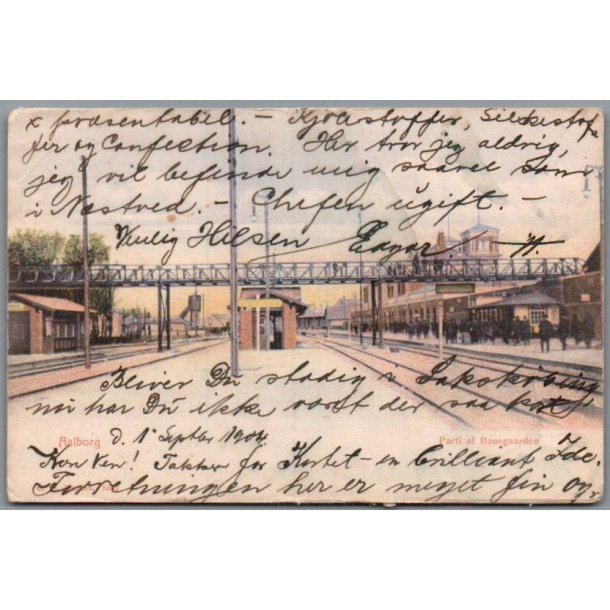 x præsentabel. — Kjolestoffer, Silkestof-
fer og Confection. Her tror jeg aldrig,
jeg vil befinde mig saavel som
i Næstved. — Chefen ugift. —
Venlig Hilsen Edgar
Bliver Du stadig i Sakskøbing
nu har Du ikke været der saa kort
Aalborg d. 1' Septbr 1904.
Parti af Banegaarden
Kære Ven! Takker for Kortet — en brilliant Ide.
Forretningen her er meget fin og x